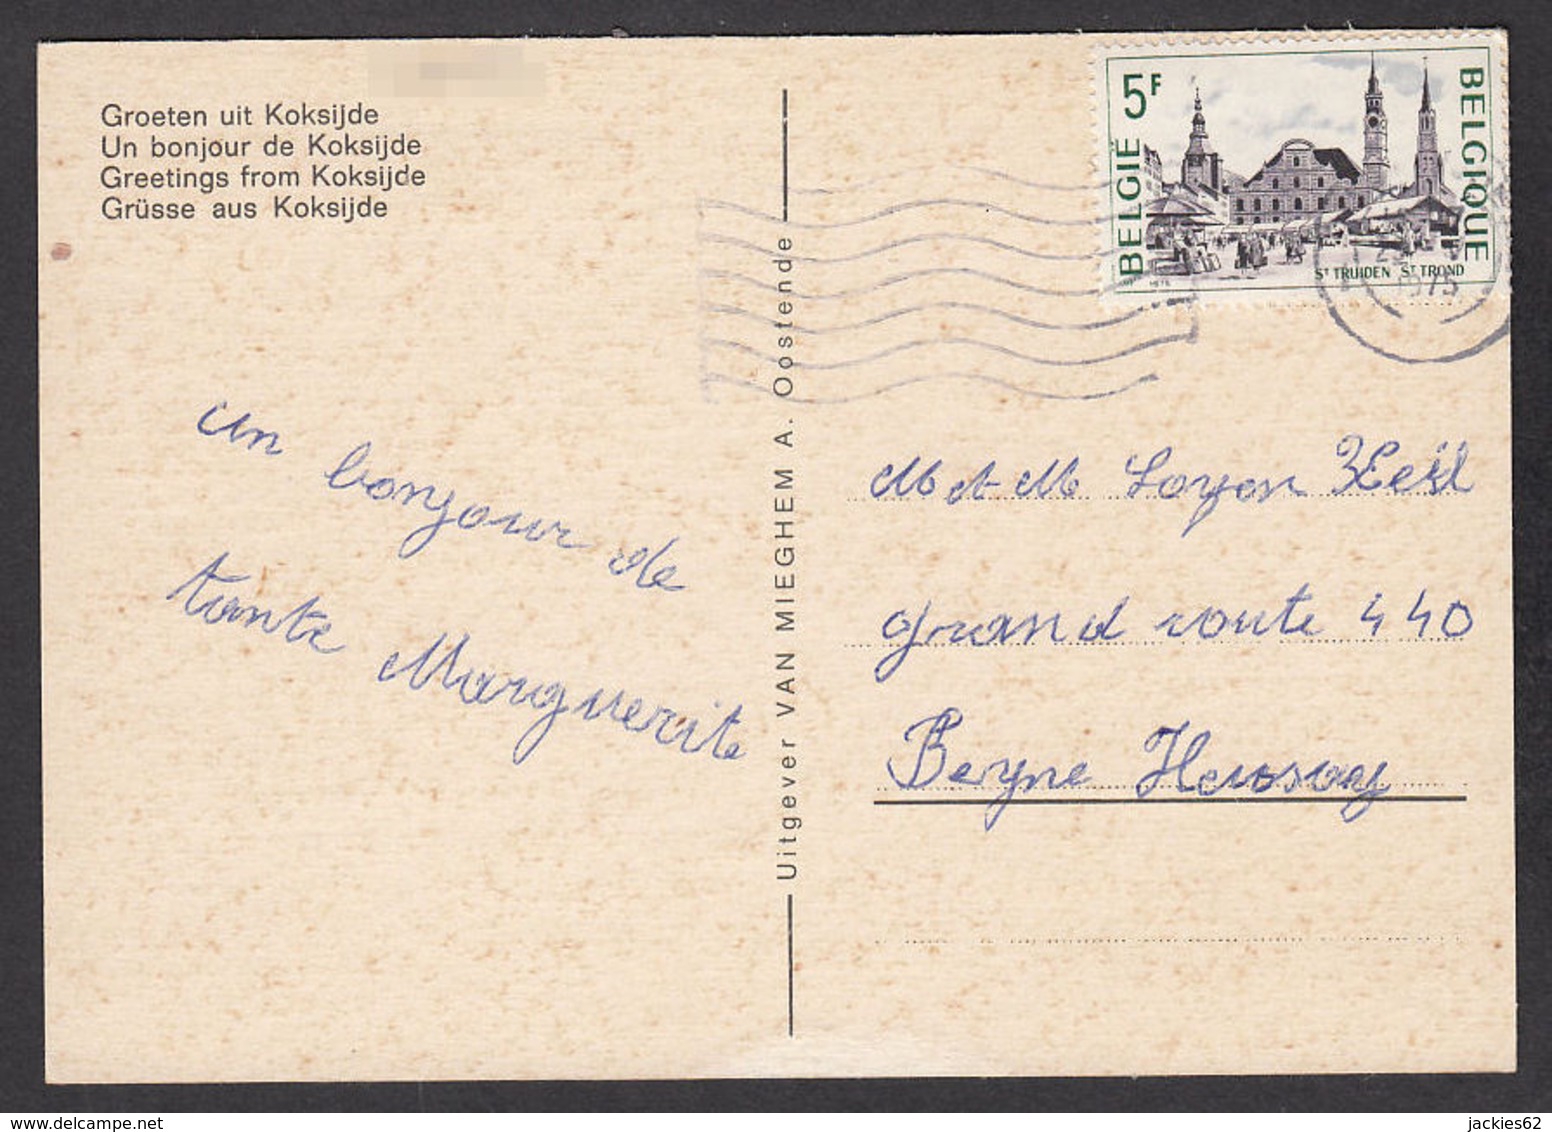 Groeten uit Koksijde
Un bonjour de Koksijde
Greetings from Koksijde
Grüsse aus Koksijde
5F
BELGIË
BELGIQUE
ST TRUIDEN ST TROND
1975
un bonjour de
tante Marguerite
Uitgever VAN MIEGHEM A. Oostende
M et M Loyen
grand route 440
Beyne Heusay
jackies62